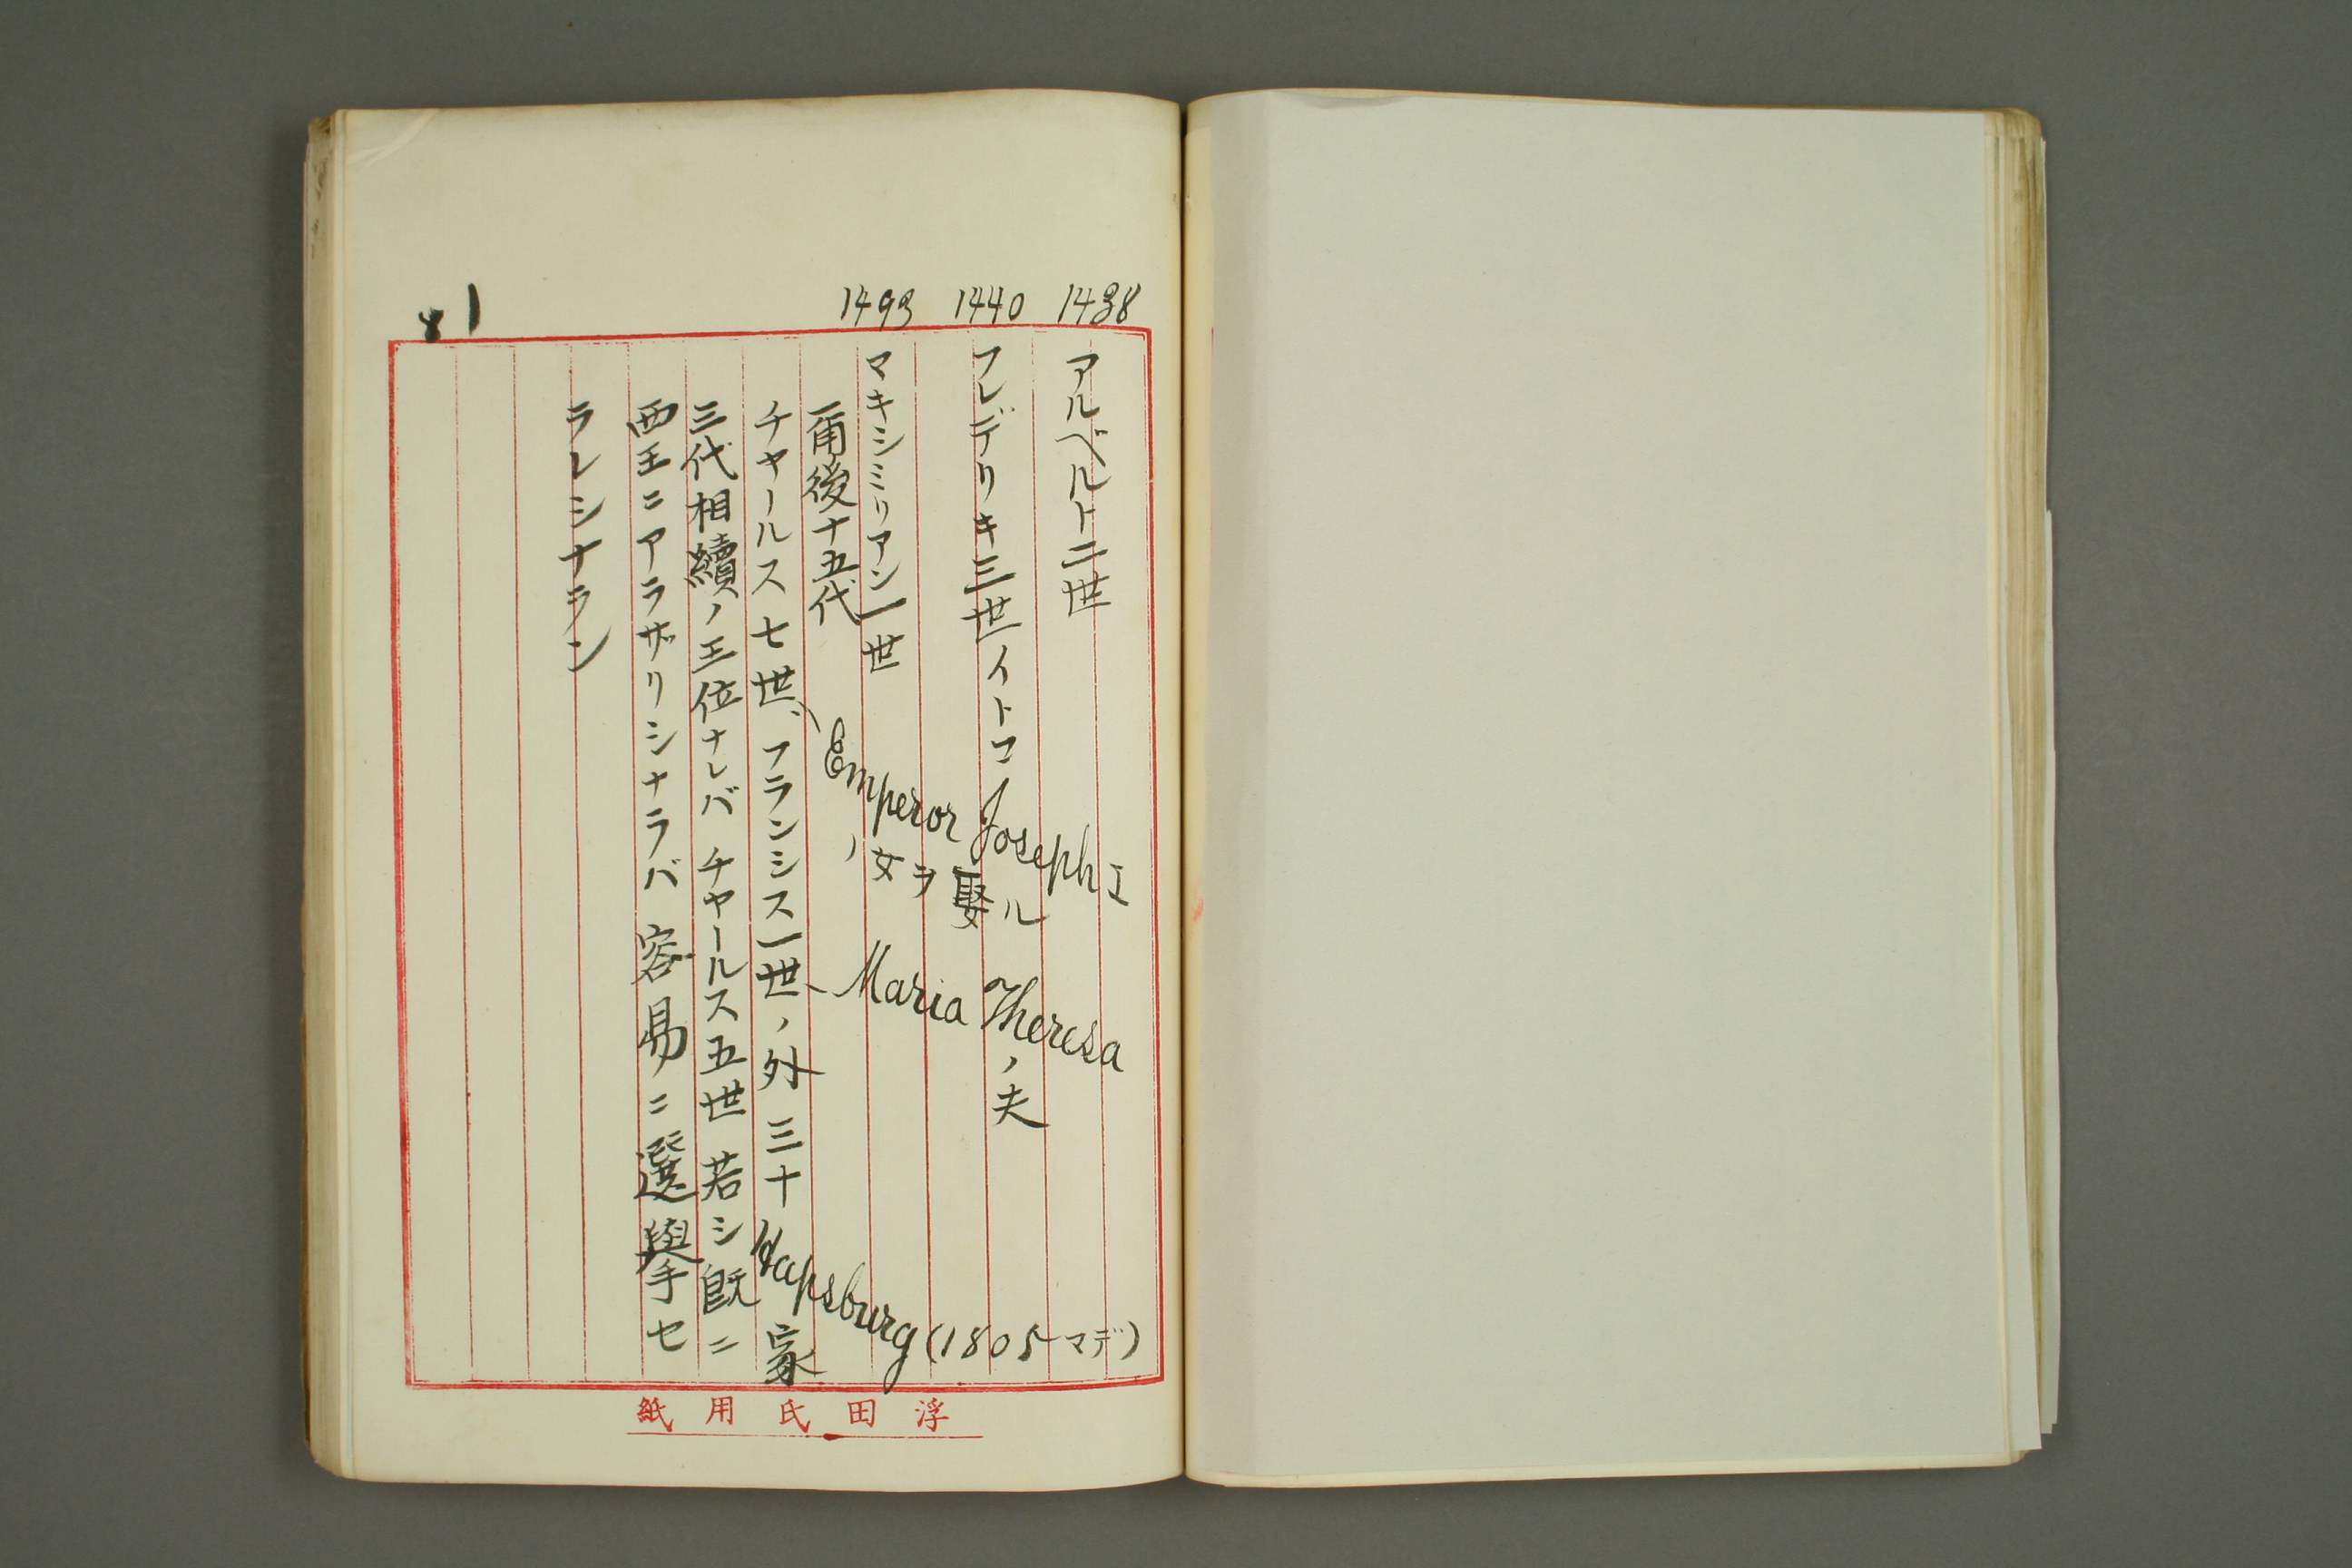 1438
アルベルト二世
1440
フレデリキ三世イトコ
1493
マキシミリアン一世
爾後十五代
Emperor Joseph I
ノ女ヲ娶ル
Maria Theresa
ノ夫
チャールス七世、フランシス一世、ノ外三十Hapsburg(1805マデ)家
三代相續ノ王位ナレバチャールス五世若シ既ニ
西王ニアラザリシナラバ容易ニ選擧セ
ラレシナラン
81
浮田氏用紙